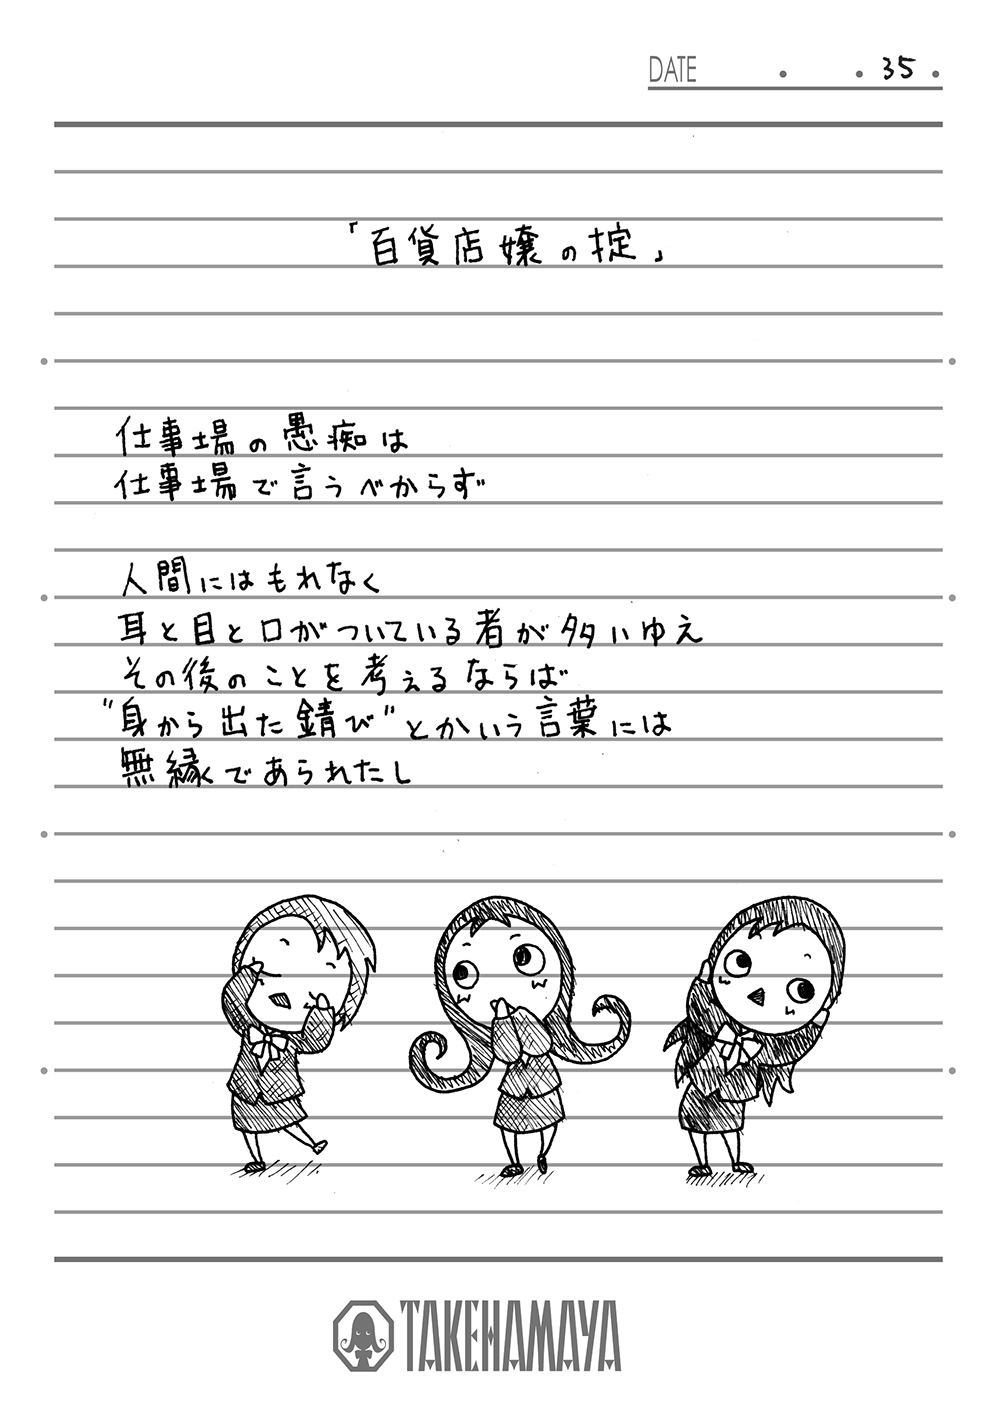 DATE ・ ・ 35 ・
「百貨店嬢の掟」
仕事場の愚痴は
仕事場で言うべからず
人間にはもれなく
耳と目と口がついている者が多いゆえ
その後のことを考えるならば
"身から出た錆び"とかいう言葉には
無縁であられたし
TAKEHAMAYA